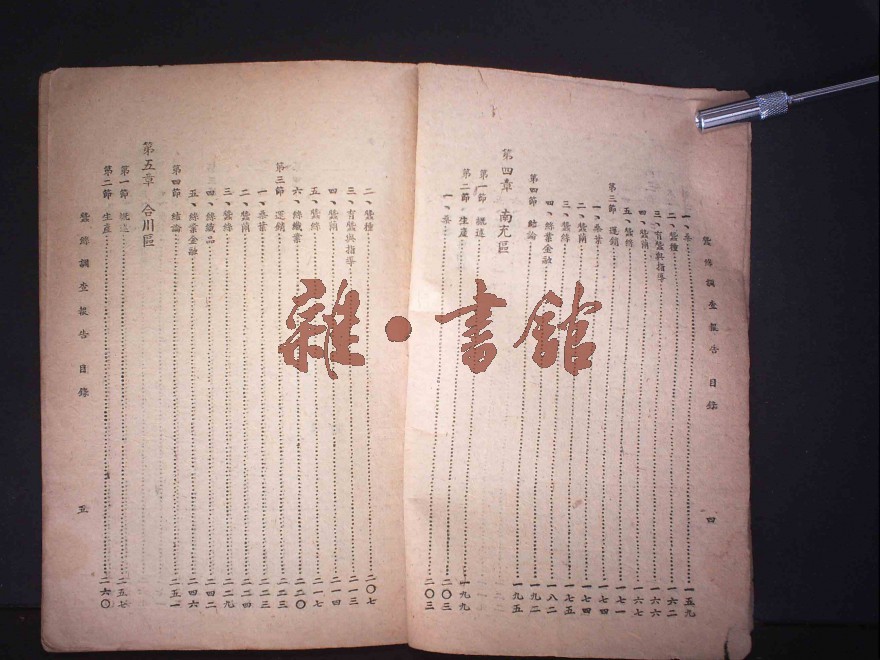 蠶絲調查報告 目錄 四
一、桑……一五九
二、蠶種……一六二
三、育蠶與指導……一六六
四、蠶繭……一六七
五、蠶絲……一七一
第三節 運銷……一七四
一、桑葉……一七四
二、蠶繭……一七五
三、蠶絲……一八二
四、絲業金融……一九二
第四節 結論……一九五
第四章 南充區
第一節 概述……一九九
第二節 生產……二〇三
一、桑……二〇三
二、蠶種……二〇七
三、育蠶與指導……二一三
四、蠶繭……二一四
五、蠶絲……二一七
六、絲織業……二二〇
第三節 運銷……二二三
一、桑葉……二二三
二、蠶繭……二二四
三、蠶絲……二二九
四、絲織品……二四二
五、絲業金融……二四六
第四節 結論……二五一
第五章 合川區
第一節 概述……二五七
第二節 生產……二六〇
蠶絲調查報告 目錄 五
雜·書館